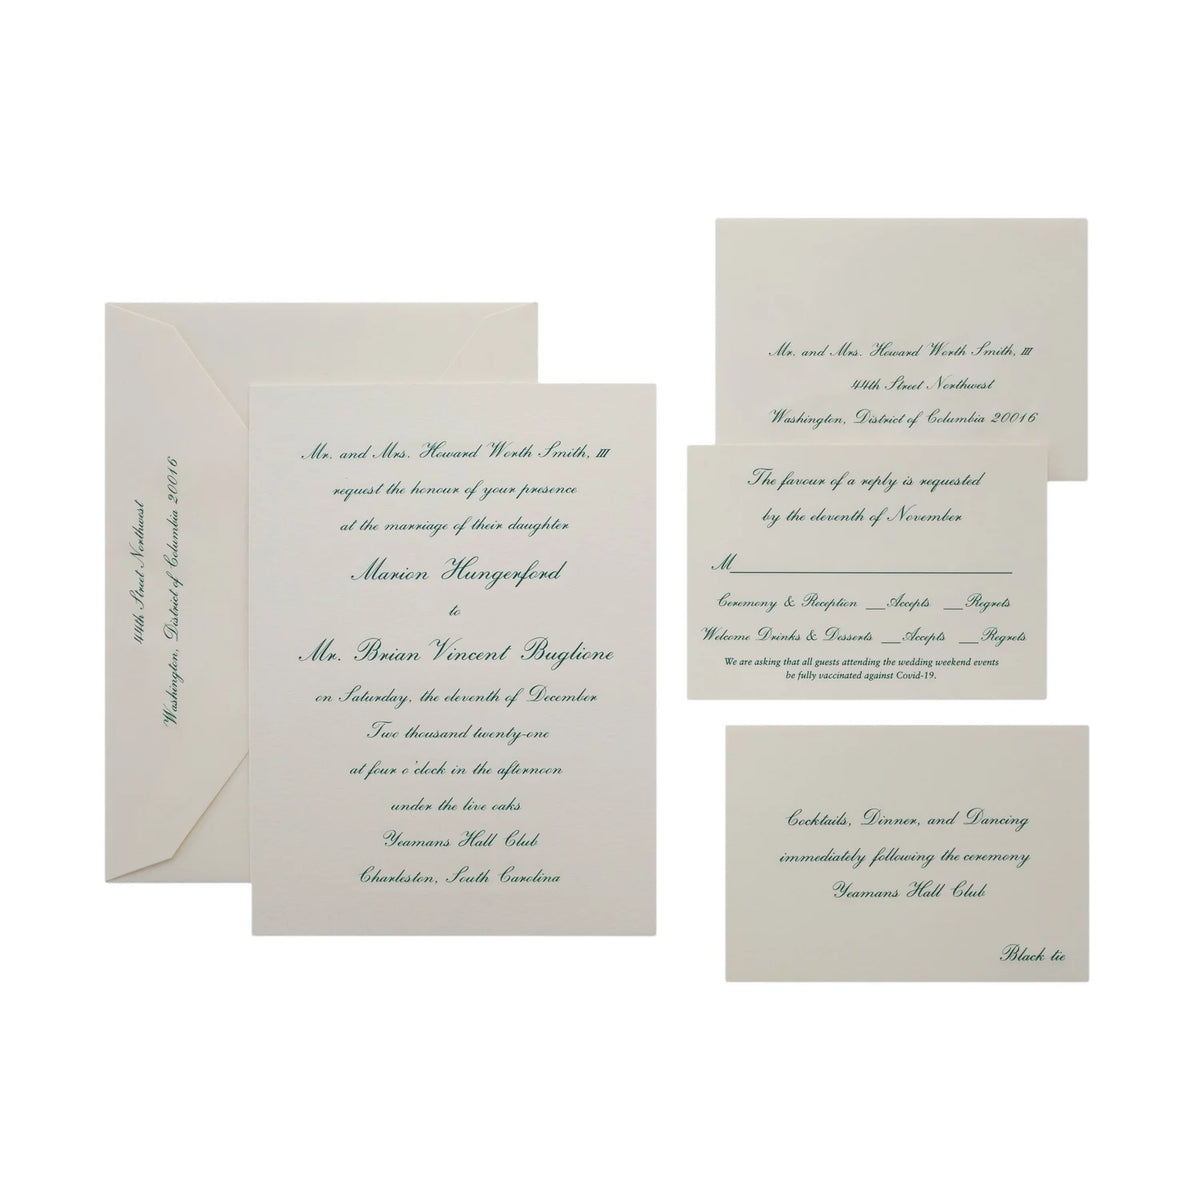 44th Street Northwest
Washington, District of Columbia 20016
Mr. and Mrs. Howard Worth Smith, III
request the honour of your presence
at the marriage of their daughter
Marion Hungerford
to
Mr. Brian Vincent Buglione
on Saturday, the eleventh of December
Two thousand twenty-one
at four o'clock in the afternoon
under the live oaks
Yeamans Hall Club
Charleston, South Carolina
Mr. and Mrs. Howard Worth Smith, III
44th Street Northwest
Washington, District of Columbia 20016
The favour of a reply is requested
by the eleventh of November
M
Ceremony & Reception __Accepts __Regrets
Welcome Drinks & Desserts __Accepts __Regrets
We are asking that all guests attending the wedding weekend events
be fully vaccinated against Covid-19.
Cocktails, Dinner, and Dancing
immediately following the ceremony
Yeamans Hall Club
Black tie